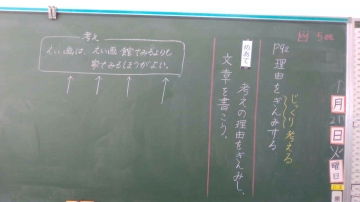 P92 理由をぎんみする
じっくり考える
めあて
考えの理由をぎんみし、
文章を書こう。
考え
えい画は、えい画館でみるよりも
家でみるほうがよい。
月
火
曜日